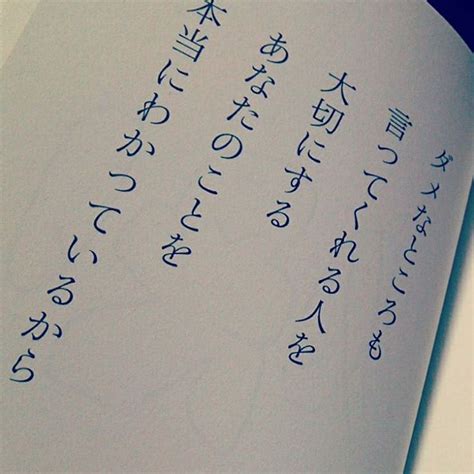 ダメなところも
言ってくれる人を
大切にする
あなたのことを
本当にわかっているから